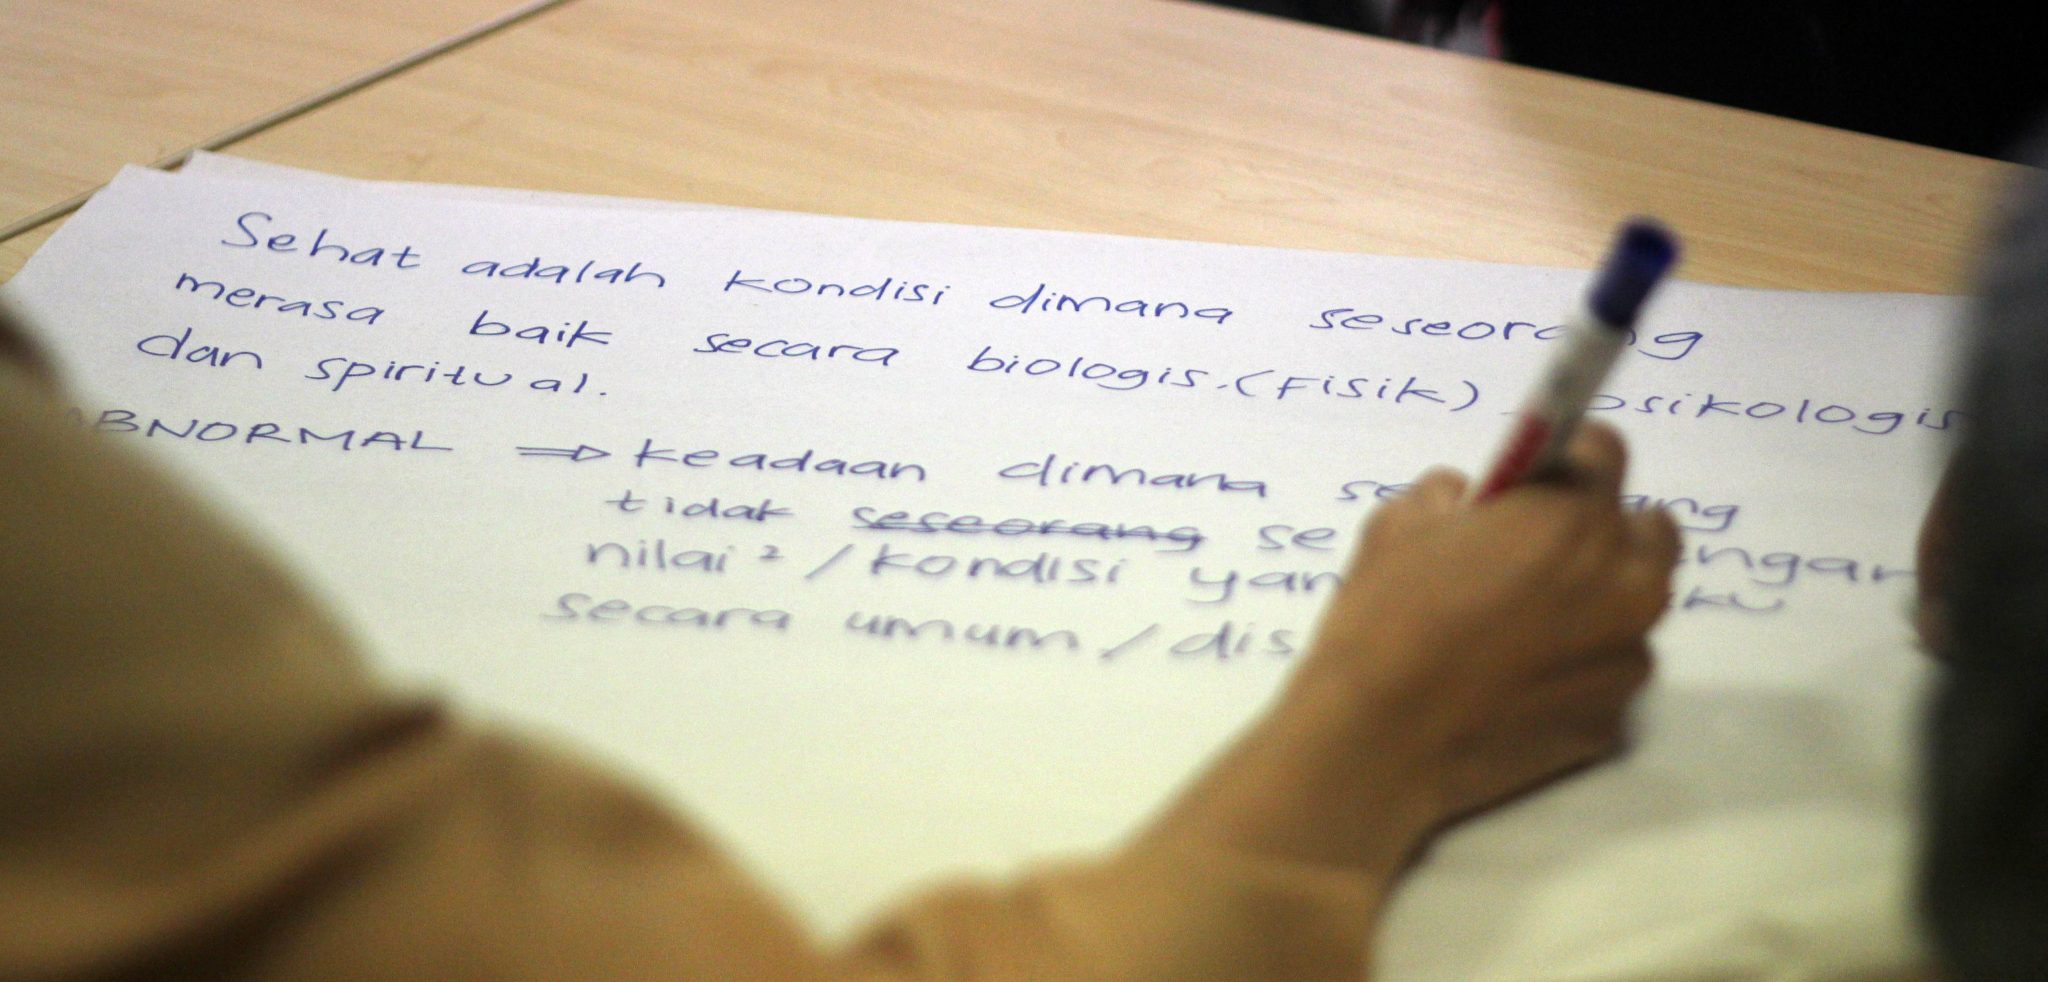 Sehat adalah kondisi dimana seseorang
merasa baik secara biologis.(Fisik), psikologis
dan spiritual.
ABNORMAL ⇒ keadaan dimana
tidak seseorang
nilai² / kondisi
secara umum /